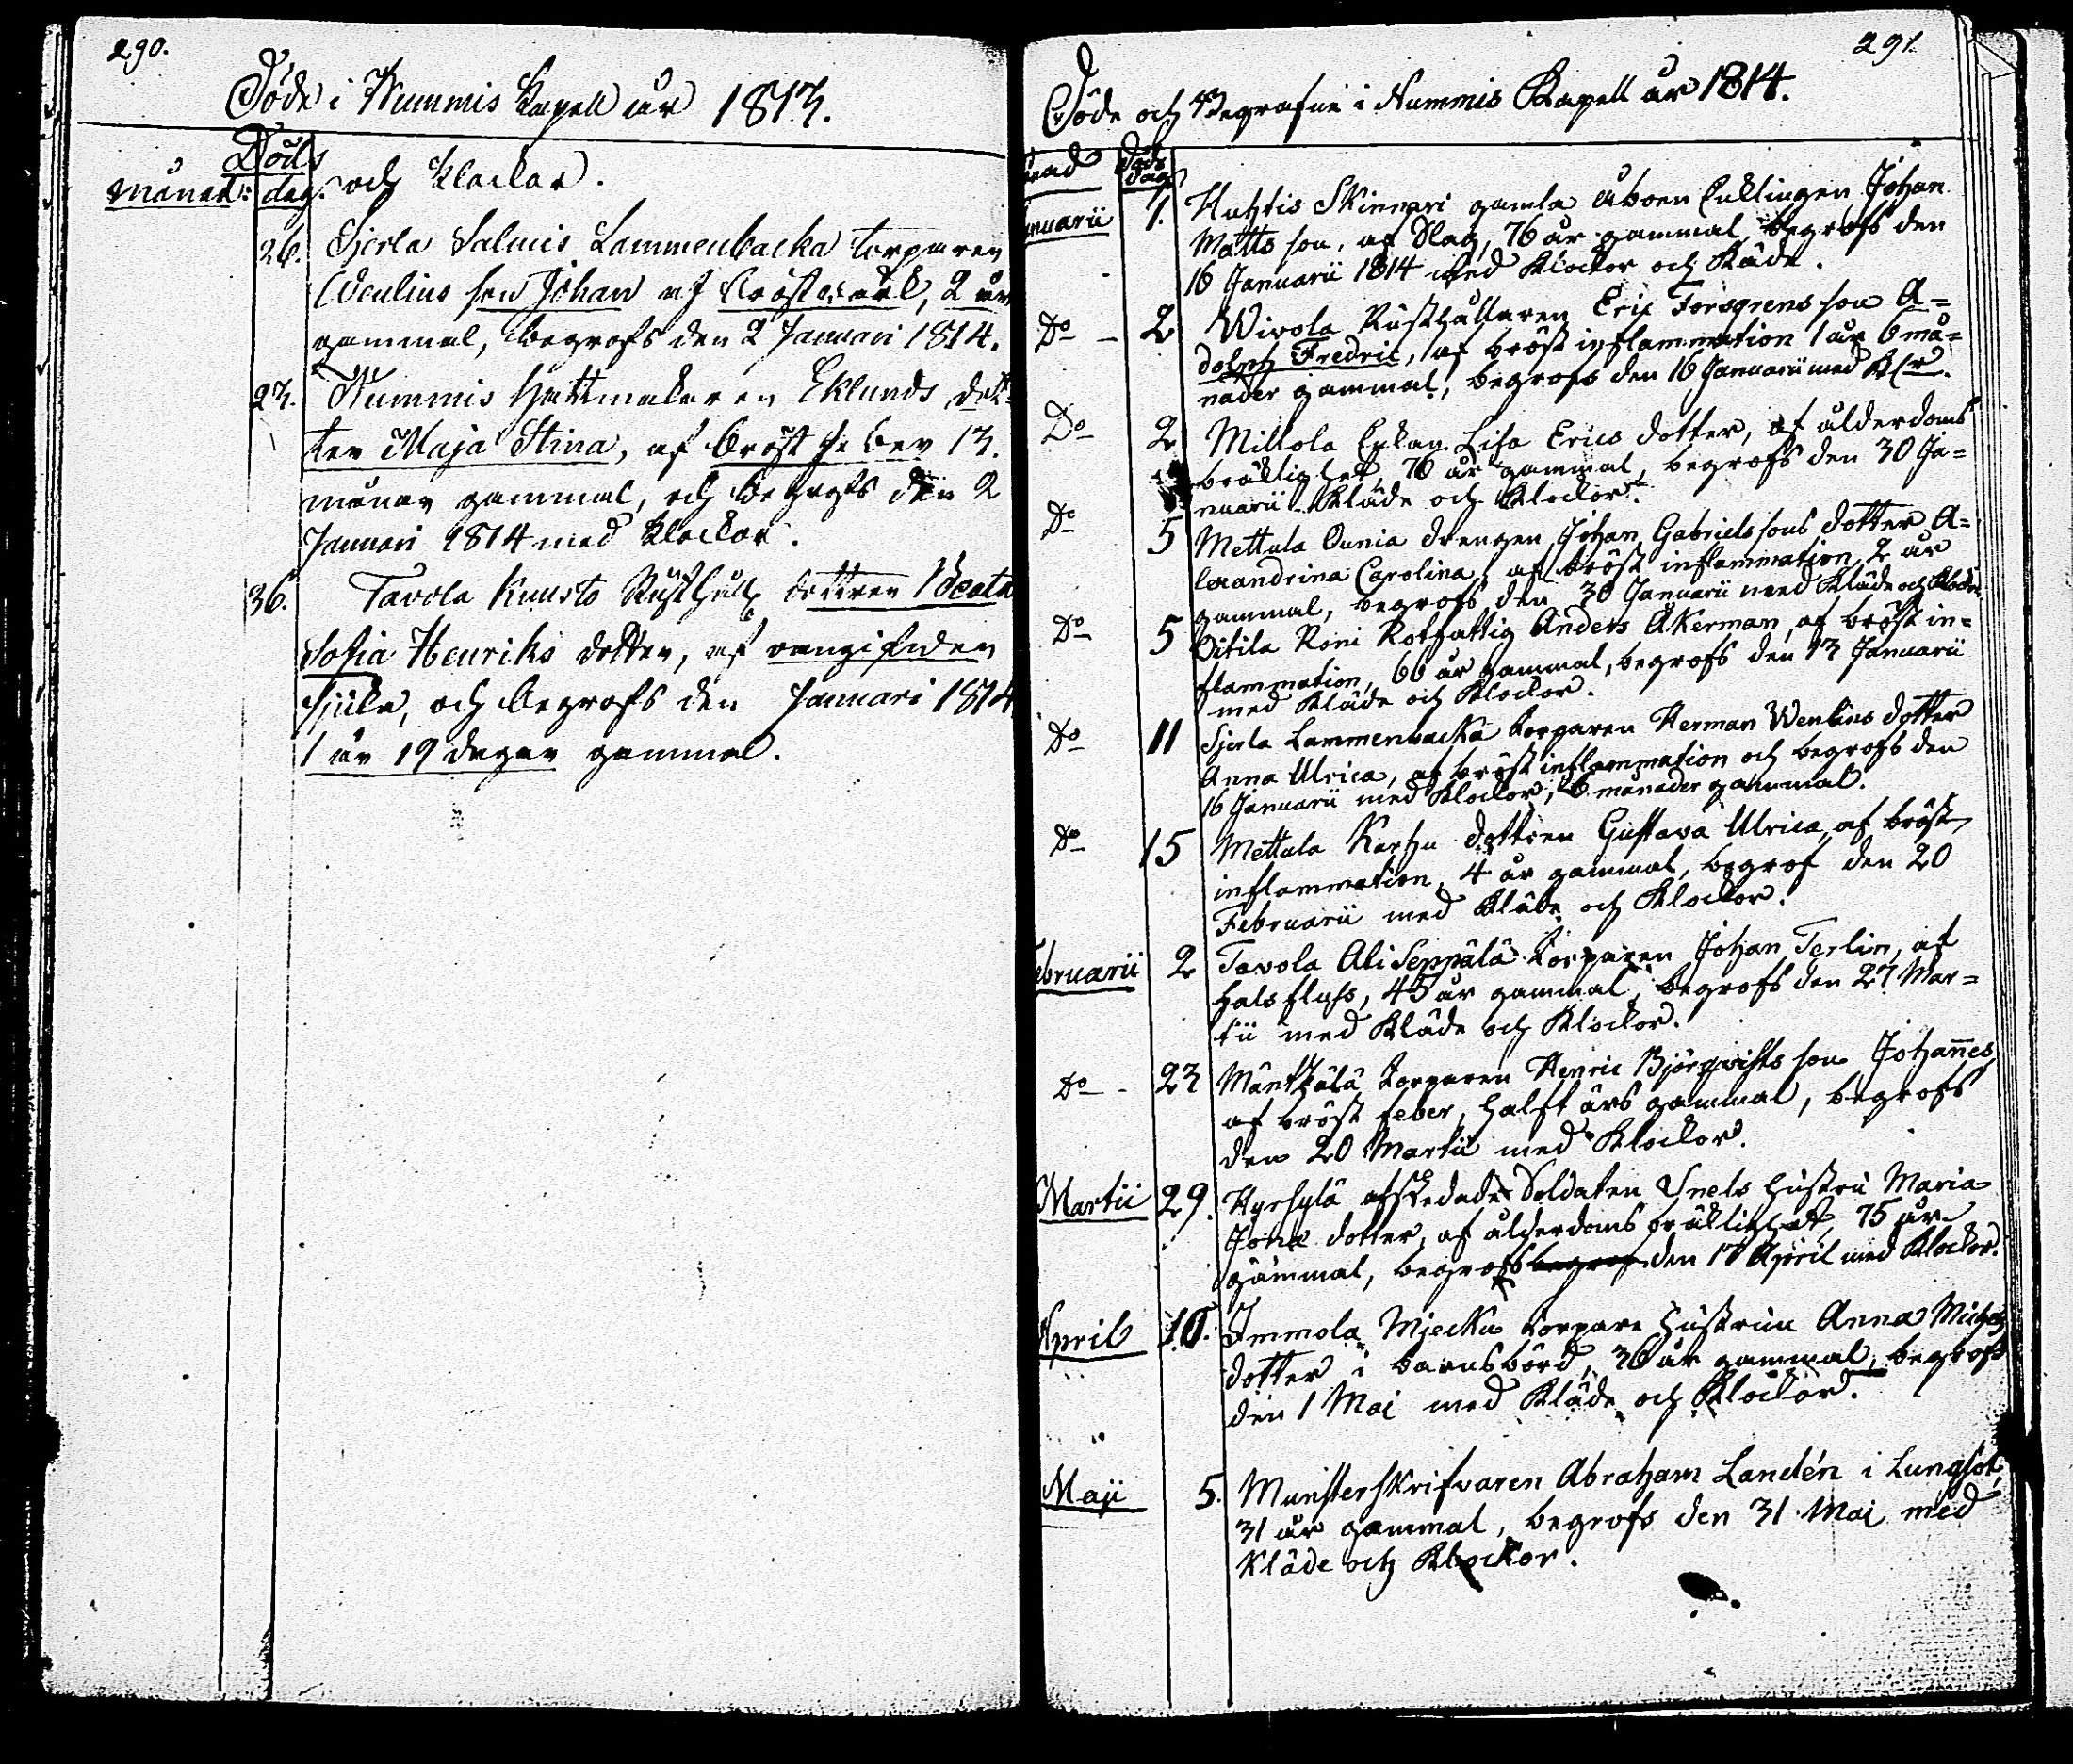 290.
Döde i Nummis Kapell år 1813.
Döds
månad: dag. och klockor.
26. Sjerla Salmis Lammenbacka torparen
Wenlius son Johan af bröstwärk, 2 år
gammal, begrofs den 2 Januari 1814.
27. Nummis Hattmakaren Eklunds dot-
ter Maja Stina, af bröst feber 13.
månar gammal, och begrofs den 2
Januari 1814 med klockor.
36. Tavola Knusto Rusthåll: dottren Beata
Sofia Henriks dotter, af
sjuka, och begrofs den Januari 1814
1 år 19 dagar gammal.
291.
Döde och Begrafne i Nummis Kapell år 1814.
nad Döds dag
anuarii 1. Huhtis Skinnari gamla åboen Enklingen Johan
Matts son, af Slag, 76 år gammal, begrofs den
16 Januarii 1814 med Klockor och Kläde.
Do 2 Wivola Rusthållaren Eric Forsgrens son A=
dolph Fredric, af bröst inflammation 1 år 6 må=
nader gammal, begrofs den 16 Januarii med Klr.
Do 2 Millola Enkan Lisa Erics dotter, af ålderdoms
bräcklighet, 76 år gammal, begrofs den 30 Ja=
nuarii Kläde och Klockor.
Do 5 Mettula Ounia drengen Johan Gabrielssons dotter A=
lexandrina Carolina, af bröst inflammation, 2 år
gammal, begrofs den 30 Januarii med Kläde och Klockor
Do 5 Oitila Roni Rotfattig Anders Åkerman, af bröst in=
flammation, 66 år gammal, begrofs den 13 Januarii
med Kläde och Klockor.
Do 11 Sjerla Lammenbacka torparen Herman Wenlins dotter
Anna Ulrica, af bröst inflammation och begrofs den
16 Januarii med Klockor, 6 månader gammal.
Do 15 Mettula Karhu dottren Gustava Ulrica, af bröst
inflammation, 4 år gammal, begrof den 20
Februarii med Kläde och Klockor.
ebruarii 2 Tavola Ali Seppälä torparen Johan Terlin, af
halsfluss, 45 år gammal, begrofs den 27 Mar=
tii med Kläde och Klockor.
Do 23 Mäntkälä torparen Henric Björqvists son Johannes,
af bröst feber, halft års gammal, begrofs
den 20 Martii med Klockor.
Martii 29. Hyrsylä afskedade Soldaten Snels hustru Maria
Johns dotter, af ålderdoms bräklighet, 75 år
gammal, begrofs begrof den 17 April med Klockor.
April 10. Immola Mjecku torpare hustrun Anna Michels
dotter i barnsbörd, 36 år gammal, begrofs
den 1 Mai med Kläde och Klockor.
Maji 5. Munsterskrifvaren Abraham Landén i Lungsot,
31 år gammal, begrofs den 31 Mai med
Kläde och Klockor.